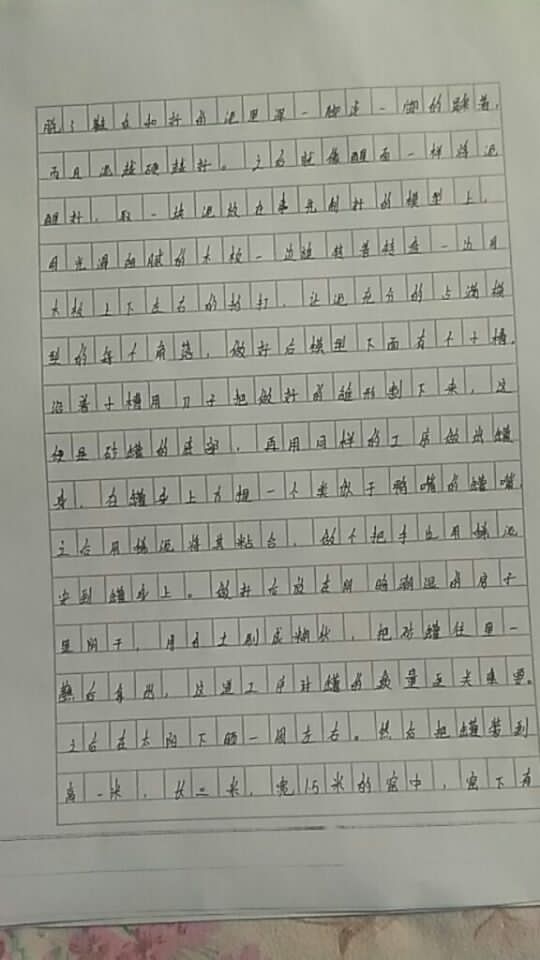 脱了鞋在和好的泥里深一脚浅一脚的踩着,
而且泥越硬越好。之后就像醒面一样将泥
醒好,取一块泥放在事先制好的模型上,
用光滑细腻的木板一边拍转着转盘一边用
木板上下左右的拍打,让泥充分的占满模
型的每个角落,做好后模型下面有个十槽,
沿着十槽用刀子把做好的雏形割下来,这
便是砂罐的底部,再用同样的工序做出罐
身,在罐身上方捏一个类似于鸭嘴的罐嘴,
之后用稀泥将其粘合,做个把手也用稀泥
安到罐身上。做好后放在阴暗潮湿的房子
里阴干,用白土制成糊状,把砂罐往里一
蘸后拿出,这道工序对罐的质量至关重要。
之后在太阳下晒一周左右。然后把罐装到
高一米,长二米,宽15米的窑中,窑下有